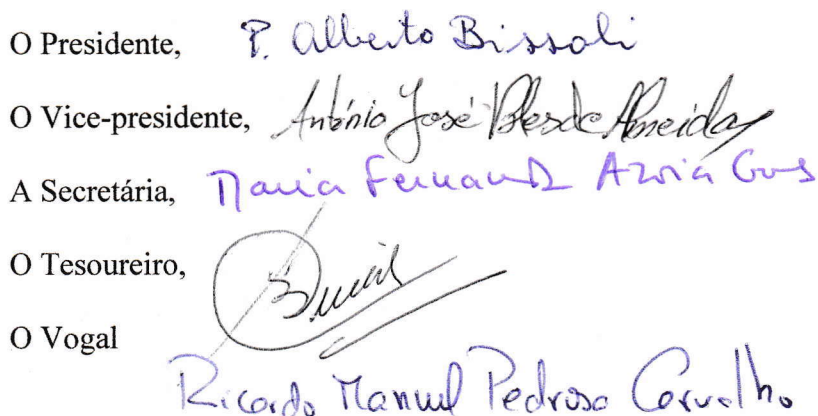 O Presidente, P. Alberto Bissoli
O Vice-presidente, António José de Almeida
A Secretária, Maria Fernanda
O Tesoureiro,
O Vogal
Ricardo Manuel Pedrosa Carvalho